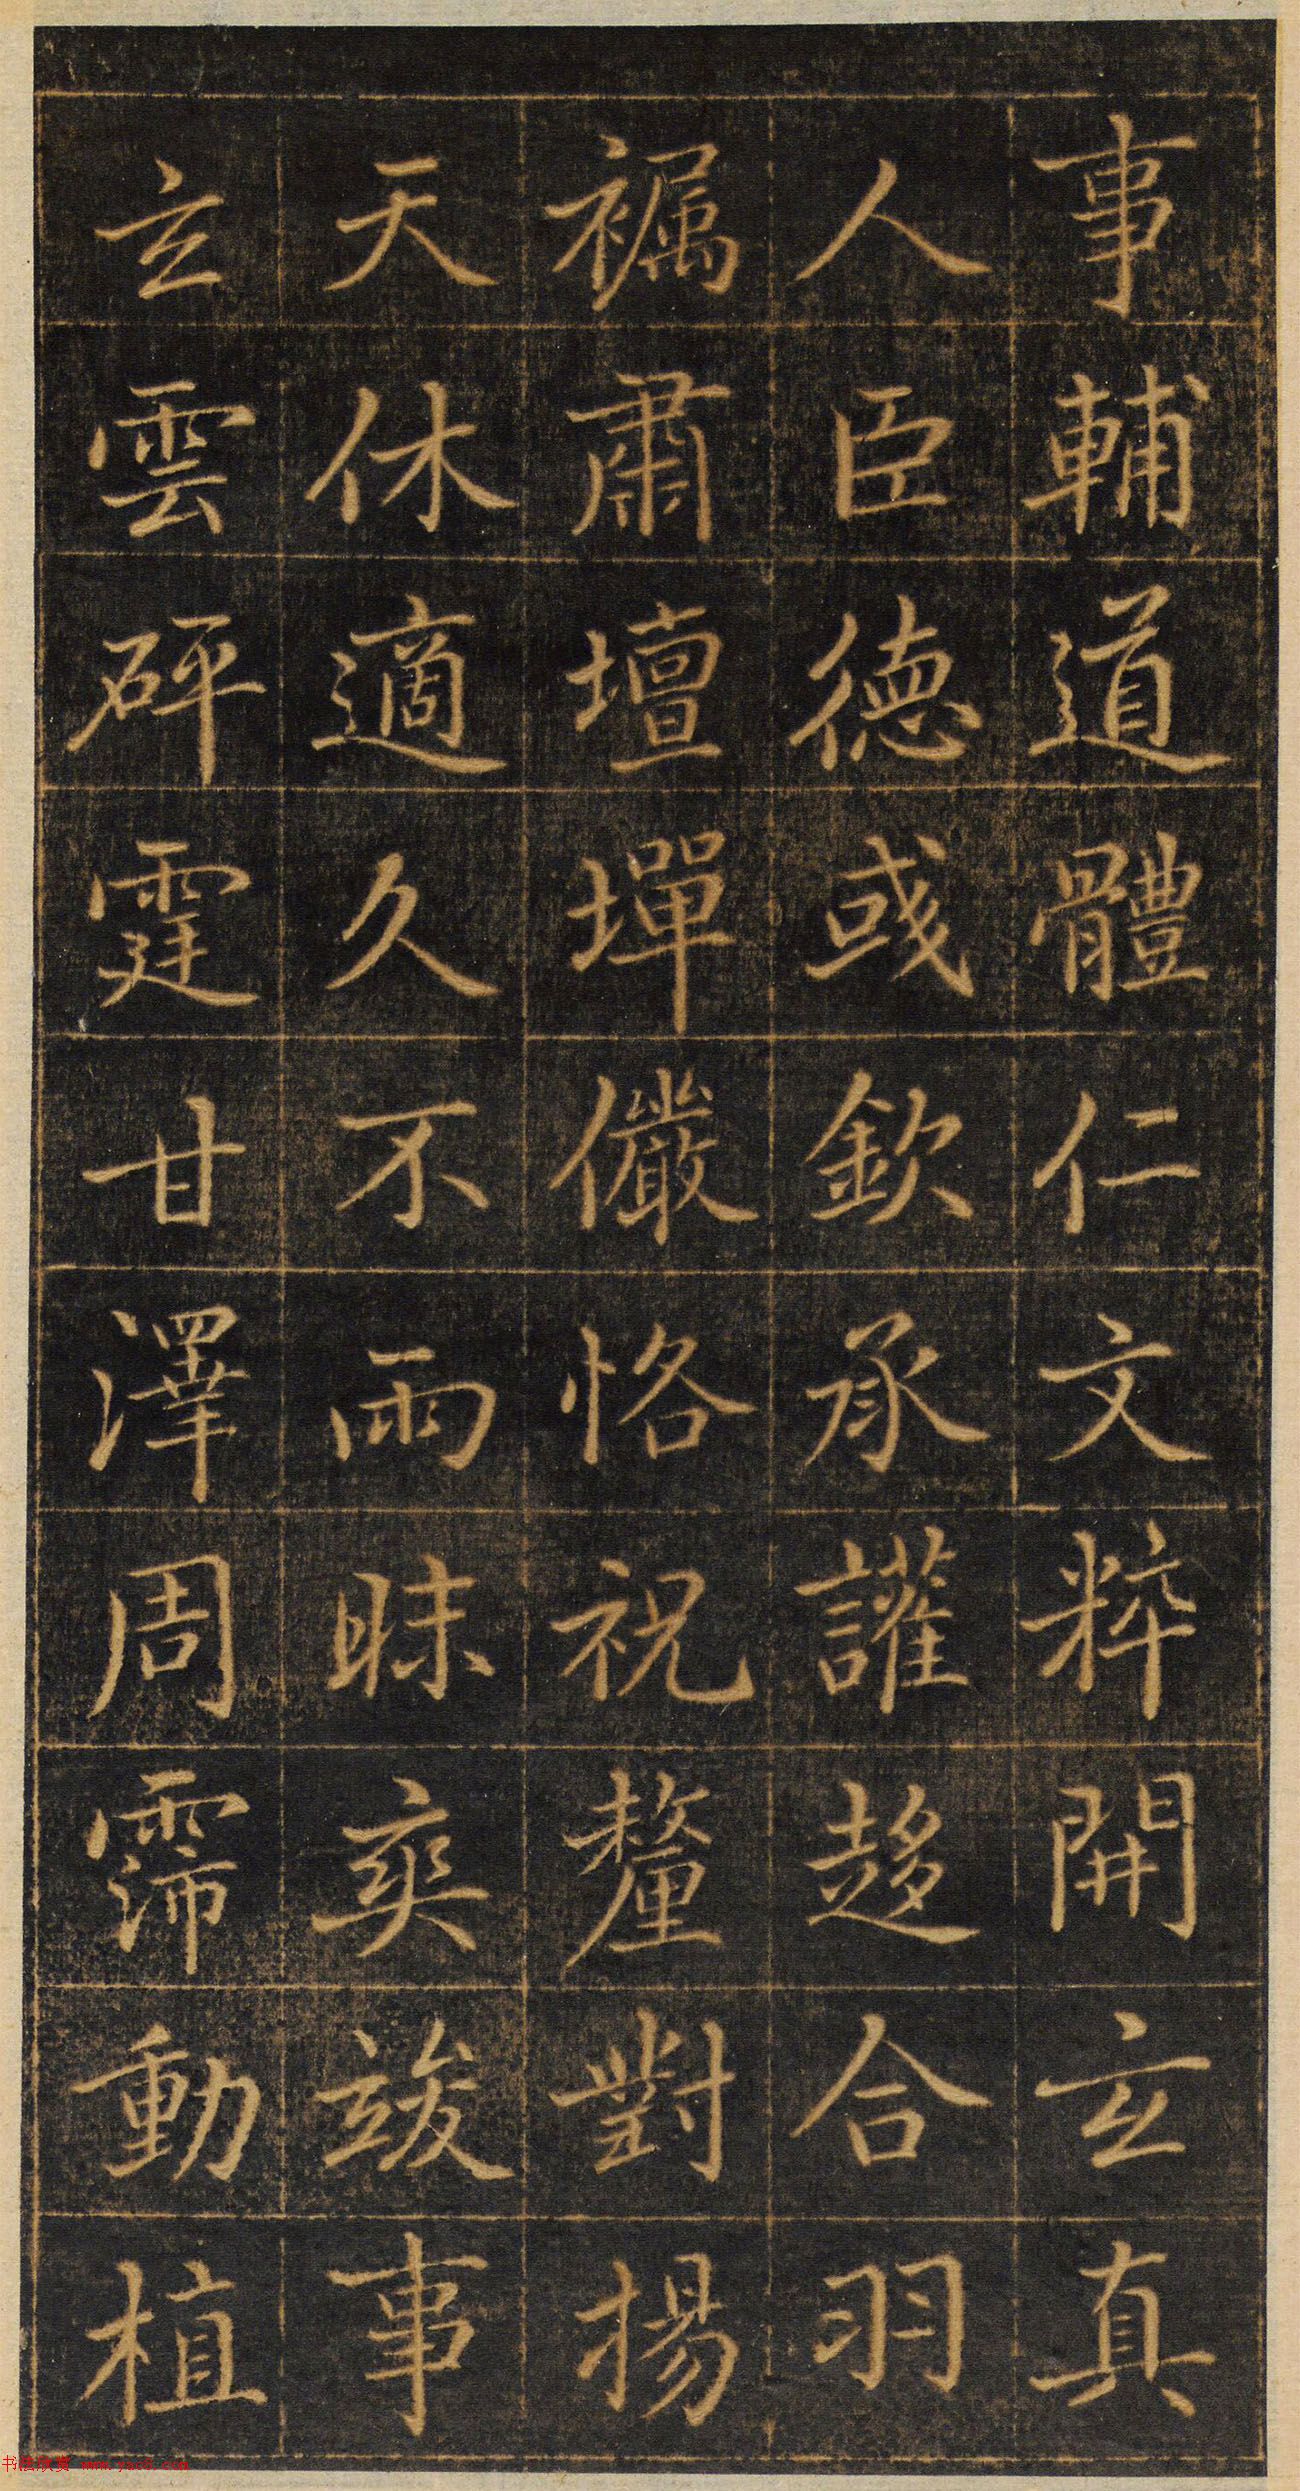 事輔道體仁文粹開玄真
人臣德或欽承讙趍合羽
襡肅壇墠儼恪祝釐對揚
天休適久不雨昧爽竣事
玄雲砰霆甘澤周霈動植
www.yac8.com